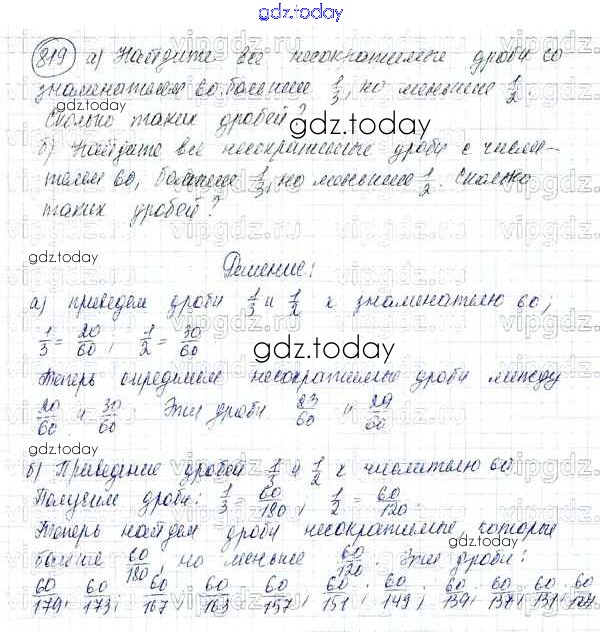 gdz.today
819 а) Найдите все несократимые дроби со
знаменателем 60, большие 1/3, но меньшие 1/2.
Сколько таких дробей?
gdz.today
б) Найдите все несократимые дроби с числи-
телем 60, большие 1/3, но меньшие 1/2. Сколько
таких дробей?
gdz.today
gdz.today
Решение:
а) приведем дроби 1/3 и 1/2 к знаменателю 60;
1/3 = 20/60; 1/2 = 30/60
gdz.today
Теперь определим несократимые дроби между
20/60 и 30/60. Эти дроби 23/60 и 29/60
gdz.today
б) Приведение дробей 1/3 и 1/2 к числителю 60
Получим дроби: 1/3 = 60/180, 1/2 = 60/120
Теперь найдем дроби несократимые, которые
больше 60/180, но меньше 60/120. Эти дроби:
60/179; 60/173; 60/167; 60/163; 60/157; 60/151; 60/149; 60/139; 60/137; 60/131; 60/127
gdz.today